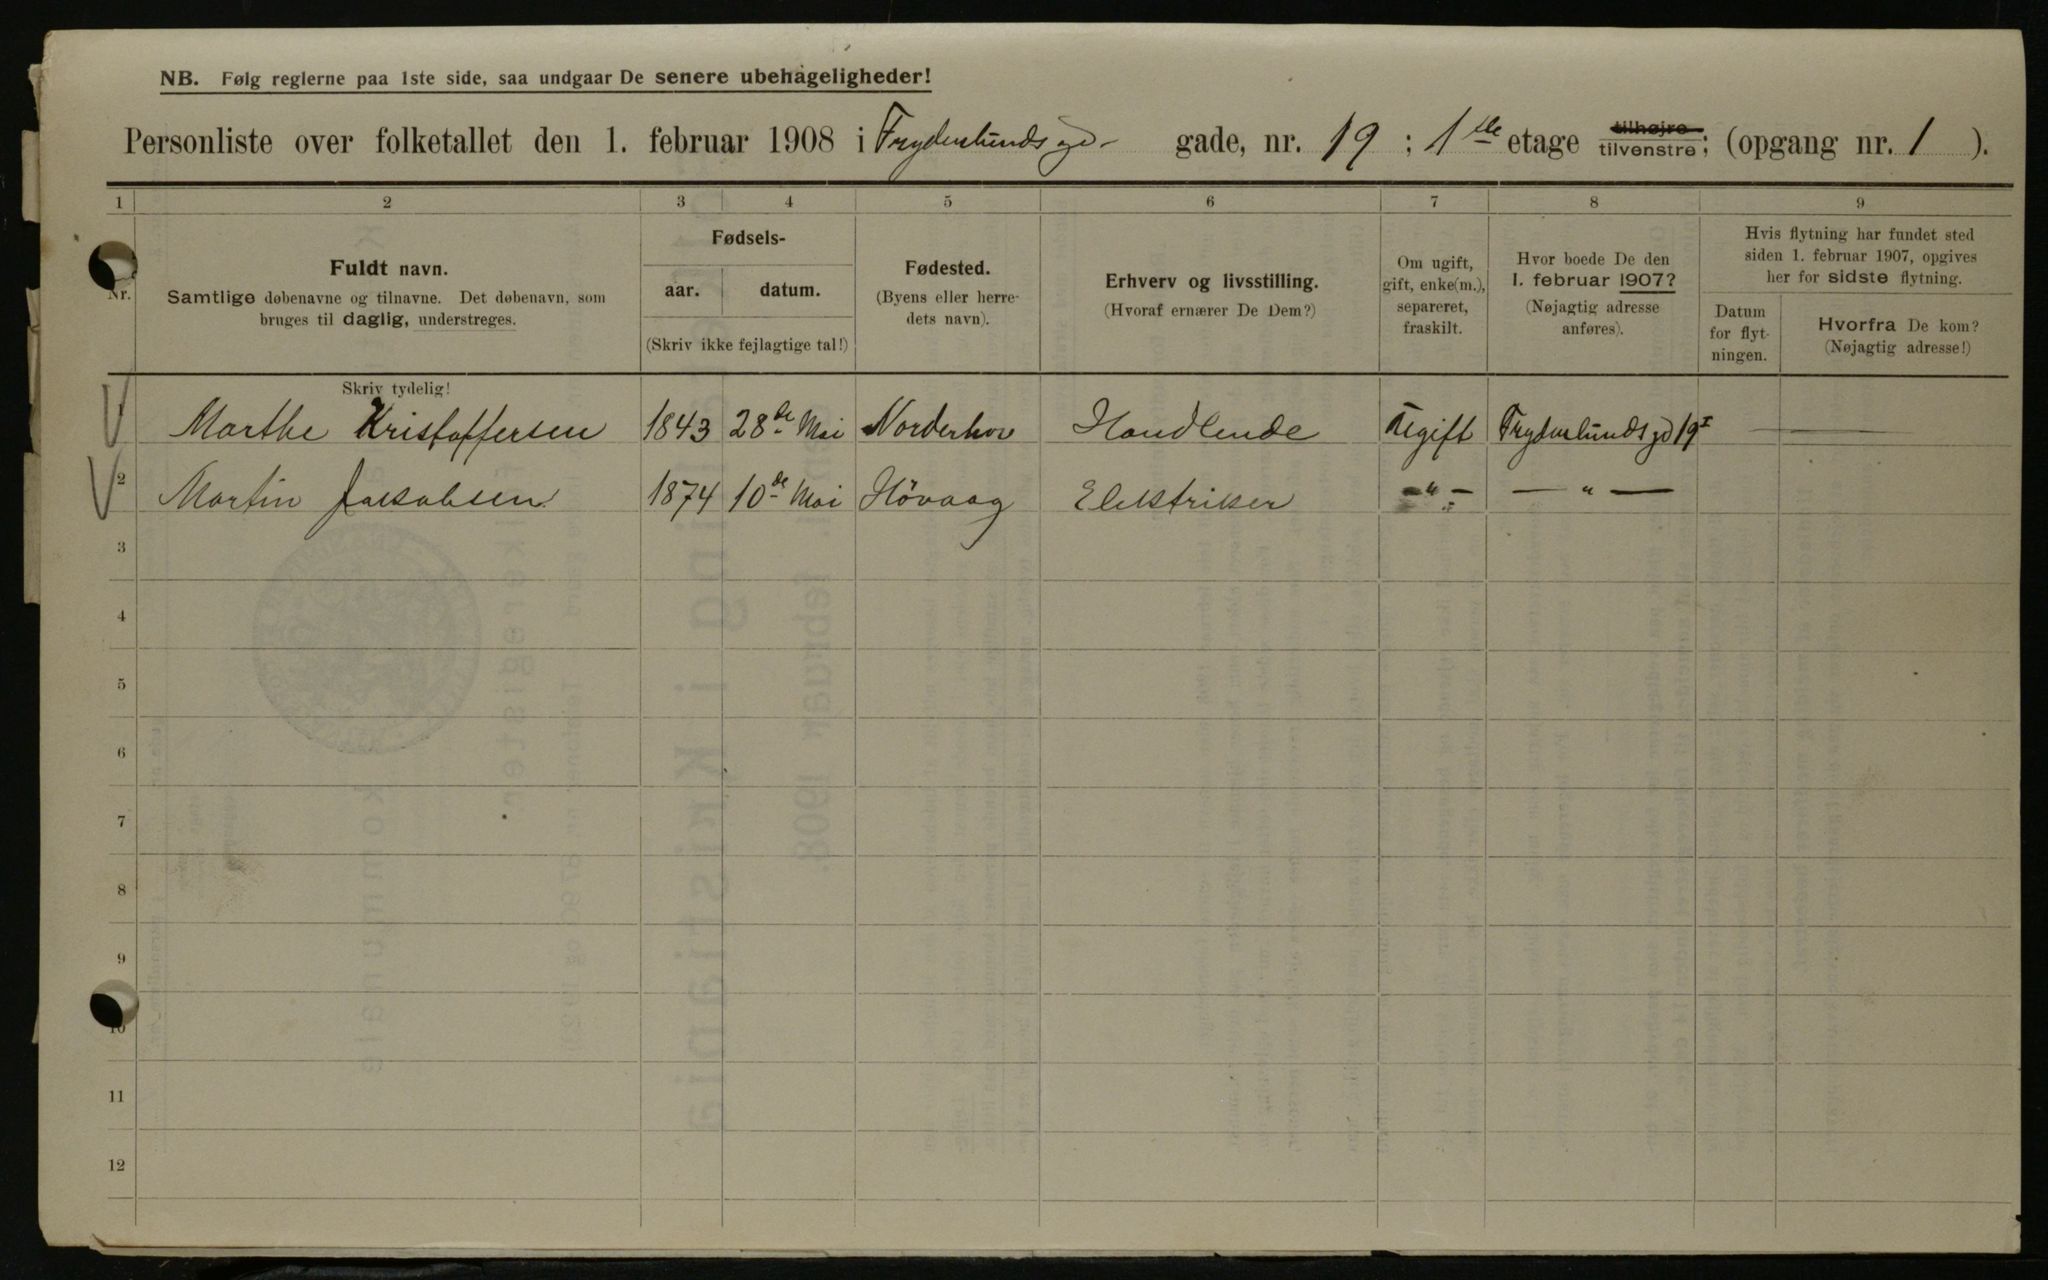 NB. Følg reglerne paa 1ste side, saa undgaar De senere ubehageligheder!
Personliste over folketallet den 1. februar 1908 i Frydenlundsgd- gade, nr. 19 ; 1ste etage tilhøjre tilvenstre ; (opgang nr. 1 ).
1 2 3 4 5 6 7 8 9
Nr.
Fuldt navn.
Samtlige døbenavne og tilnavne. Det døbenavn, som
bruges til daglig, understreges.
Skriv tydelig!
Fødsels-
aar. datum.
(Skriv ikke fejlagtige tal!)
Fødested.
(Byens eller herre-
dets navn).
Erhverv og livsstilling.
(Hvoraf ernærer De Dem?)
Om ugift,
gift, enke(m.),
separeret,
fraskilt.
Hvor boede De den
1. februar 1907?
(Nøjagtig adresse
anføres).
Hvis flytning har fundet sted
siden 1. februar 1907, opgives
her for sidste flytning.
Datum
for flyt-
ningen.
Hvorfra De kom?
(Nøjagtig adresse!)
1 Marthe Kristoffersen 1843 28de Mai Norderhov Handlende Ugift Frydenlundsgd 19 I —
2 Martin Jakobsen 1874 10de Mai Hövaag Elektriker —"— —"—
3
4
5
6
7
8
9
10
11
12